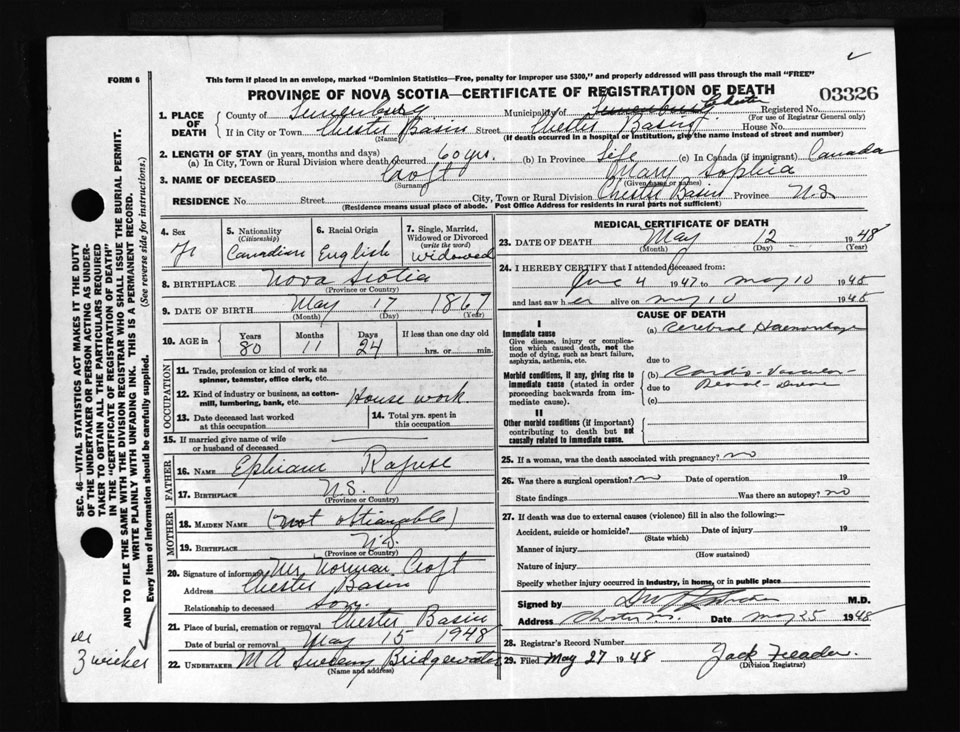 FORM 6
This form if placed in an envelope, marked "Dominion Statistics—Free, penalty for improper use $300," and properly addressed will pass through the mail "FREE"
PROVINCE OF NOVA SCOTIA—CERTIFICATE OF REGISTRATION OF DEATH
03326
1. PLACE OF DEATH
County of Lunenburg Municipality of Lunenburg Chester Registered No.
(For use of Registrar General only)
If in City or Town Chester Basin Street Chester Basin House No.
(Name) (If death occurred in a hospital or institution, give the name instead of street and number)
2. LENGTH OF STAY (in years, months and days)
(a) In City, Town or Rural Division where death occurred 60 yrs. (b) In Province Life (c) In Canada (if immigrant) Canada
3. NAME OF DECEASED Croft Mary Sophia
(Surname) (Given name or names)
RESIDENCE No. Street City, Town or Rural Division Chester Basin Province N.S.
(Residence means usual place of abode. Post Office Address for residents in rural parts not sufficient)
4. Sex
5. Nationality (Citizenship) Canadian
6. Racial Origin English
7. Single, Married, Widowed or Divorced (write the word) Widowed
8. BIRTHPLACE Nova Scotia
(Province or Country)
9. DATE OF BIRTH May 17 1867
(Month) (Day) (Year)
10. AGE in Years 80 Months 11 Days 24 If less than one day old
hrs. or min.
OCCUPATION
11. Trade, profession or kind of work as
spinner, teamster, office clerk, etc.
12. Kind of industry or business, as cotton-
mill, lumbering, bank, etc. House work
13. Date deceased last worked
at this occupation
14. Total yrs. spent in
this occupation
15. If married give name of wife
or husband of deceased
FATHER
16. NAME Ephriam Rafuse
17. BIRTHPLACE N.S.
(Province or Country)
MOTHER
18. MAIDEN NAME (not obtainable)
19. BIRTHPLACE N.S.
(Province or Country)
20. Signature of informant Mr. Norman Croft
Address Chester Basin
Relationship to deceased son
21. Place of burial, cremation or removal Chester Basin
Date of burial or removal May 15 1948
22. UNDERTAKER M A Sweeny Bridgewater
(Name and address)
MEDICAL CERTIFICATE OF DEATH
23. DATE OF DEATH May 12 1948
(Month) (Day) (Year)
24. I HEREBY CERTIFY that I attended deceased from:
June 4 1947 to may 10 1948
and last saw her alive on may 10 1948
CAUSE OF DEATH
I
Immediate cause
Give disease, injury or complication which caused death, not the mode of dying, such as heart failure, asphyxia, asthenia, etc.
(a) Cerebral Haemorrhage
due to
Morbid conditions, if any, giving rise to immediate cause (stated in order proceeding backwards from immediate cause).
(b) Cardio-Vascular-
due to Renal-Disease
(c)
II
Other morbid conditions (if important) contributing to death but not causally related to immediate cause.
25. If a woman, was the death associated with pregnancy? no
26. Was there a surgical operation? no Date of operation 19
State findings Was there an autopsy? no
27. If death was due to external causes (violence) fill in also the following:—
Accident, suicide or homicide? Date of injury 19
(State which)
Manner of injury
(How sustained)
Nature of injury
Specify whether injury occurred in industry, in home, or in public place
Signed by M.D.
Address Date may 25 1948
28. Registrar's Record Number
29. Filed May 27 1948 Jack
(Division Registrar)
SEC. 46—VITAL STATISTICS ACT MAKES IT THE DUTY
OF THE UNDERTAKER OR PERSON ACTING AS UNDER-
TAKER TO OBTAIN ALL THE PARTICULARS REQUIRED
IN THE "CERTIFICATE OF REGISTRATION OF DEATH"
AND TO FILE THE SAME WITH THE DIVISION REGISTRAR WHO SHALL ISSUE THE BURIAL PERMIT.
WRITE PLAINLY WITH UNFADING INK. THIS IS A PERMANENT RECORD.
Every item of information should be carefully supplied. (See reverse side for instructions.)
Dr
Zwicker